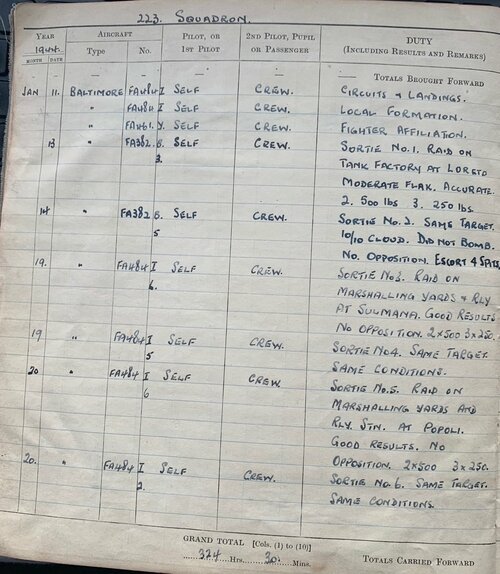 223. SQUADRON.
YEAR AIRCRAFT PILOT, OR 2ND PILOT, PUPIL DUTY
1944. Type No. 1ST PILOT OR PASSENGER (INCLUDING RESULTS AND REMARKS)
MONTH DATE
— — — — — TOTALS BROUGHT FORWARD
JAN 11. BALTIMORE FA484 I SELF CREW. CIRCUITS & LANDINGS.
" FA484 I SELF CREW. LOCAL FORMATION.
" FA461. Y. SELF CREW. FIGHTER AFFILIATION.
13 " FA382. B. SELF CREW. SORTIE NO.1. RAID ON
3. TANK FACTORY AT LORETO
MODERATE FLAK. ACCURATE.
2. 500 lbs 3. 250 lbs.
14 " FA382 B. SELF CREW. SORTIE NO.2. SAME TARGET.
5 10/10 CLOUD. DID NOT BOMB.
NO. OPPOSITION. ESCORT 4 SPITS
19. " FA484 I SELF CREW. SORTIE NO3. RAID ON
6. MARSHALLING YARDS & RLY
AT SULMANA. GOOD RESULTS
NO OPPOSITION. 2x500 3x250.
19 " FA484 I SELF CREW. SORTIE NO4. SAME TARGET.
5 SAME CONDITIONS.
20 " FA484 I SELF CREW SORTIE NO.5. RAID ON
6 MARSHALLING YARDS AND
RLY. STN. AT POPOLI.
GOOD RESULTS. NO
OPPOSITION. 2x500 3x250.
20. " FA484 I SELF CREW. SORTIE NO.6. SAME TARGET.
2. SAME CONDITIONS.
GRAND TOTAL [Cols. (1) to (10)]
324 Hrs. 30 Mins. TOTALS CARRIED FORWARD